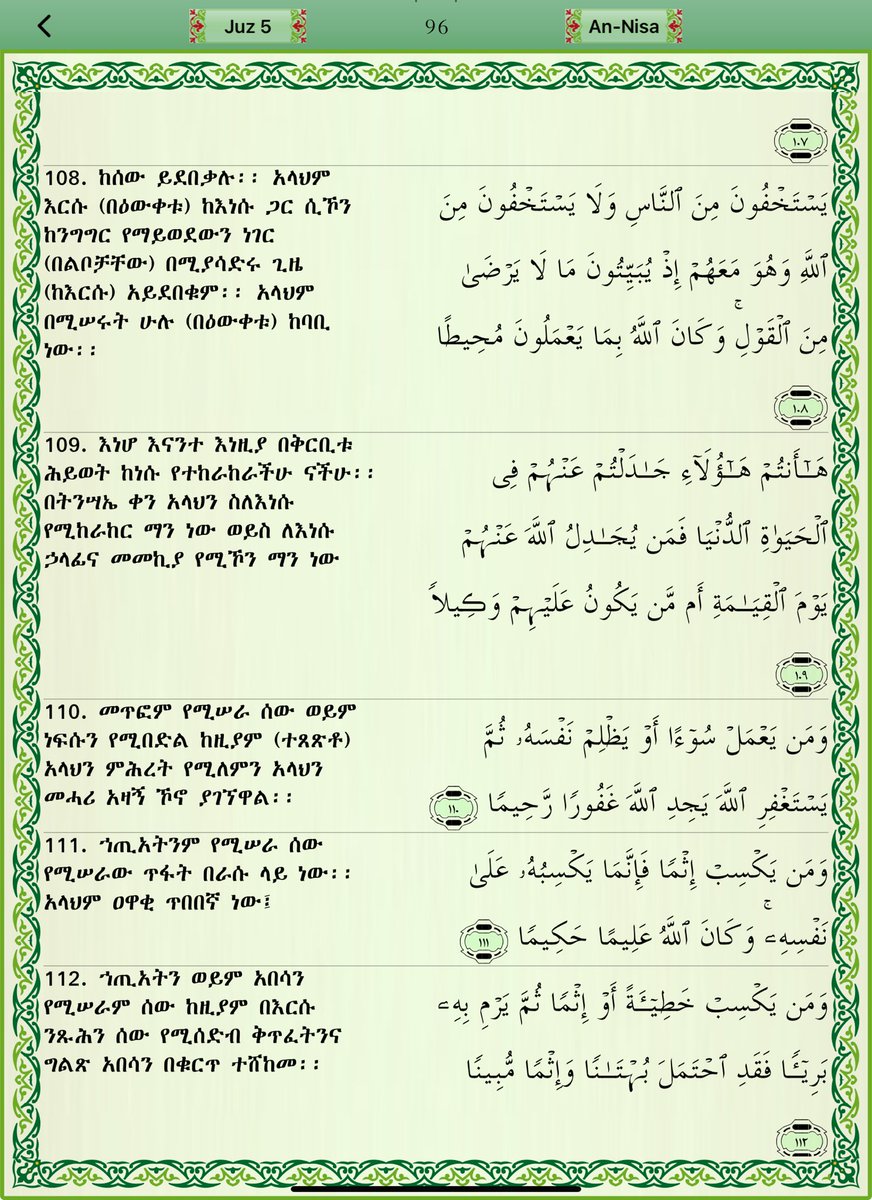 Juz 5
96
An-Nisa
١٠٧
108. ከሰው ይደበቃሉ፡፡ አላህም
እርሱ (በዕውቀቱ) ከእነሱ ጋር ሲኾን
ከንግግር የማይወደውን ነገር
(በልቦቻቸው) በሚያሳድሩ ጊዜ
(ከእርሱ) አይደበቁም፡፡ አላህም
በሚሠሩት ሁሉ (በዕውቀቱ) ከባቢ
ነው፡፡
يَسْتَخْفُونَ مِنَ ٱلنَّاسِ وَلَا يَسْتَخْفُونَ مِنَ
ٱللَّهِ وَهُوَ مَعَهُمْ إِذْ يُبَيِّتُونَ مَا لَا يَرْضَىٰ
مِنَ ٱلْقَوْلِ ۚ وَكَانَ ٱللَّهُ بِمَا يَعْمَلُونَ مُحِيطًا
١٠٨
109. እነሆ እናንተ እነዚያ በቅርቢቱ
ሕይወት ከነሱ የተከራከራችሁ ናችሁ፡፡
በትንሣኤ ቀን አላህን ስለእነሱ
የሚከራከር ማን ነው ወይስ ለእነሱ
ኃላፊና መመኪያ የሚኾን ማን ነው
هَـٰٓأَنتُمْ هَـٰٓؤُلَآءِ جَـٰدَلْتُمْ عَنْهُمْ فِى
ٱلْحَيَوٰةِ ٱلدُّنْيَا فَمَن يُجَـٰدِلُ ٱللَّهَ عَنْهُمْ
يَوْمَ ٱلْقِيَـٰمَةِ أَم مَّن يَكُونُ عَلَيْهِمْ وَكِيلًا
١٠٩
110. መጥፎም የሚሠራ ሰው ወይም
ነፍሱን የሚበድል ከዚያም (ተጸጽቶ)
አላህን ምሕረት የሚለምን አላህን
መሓሪ አዛኝ ኾኖ ያገኘዋል፡፡
وَمَن يَعْمَلْ سُوٓءًا أَوْ يَظْلِمْ نَفْسَهُۥ ثُمَّ
يَسْتَغْفِرِ ٱللَّهَ يَجِدِ ٱللَّهَ غَفُورًا رَّحِيمًا ١١٠
111. ኀጢአትንም የሚሠራ ሰው
የሚሠራው ጥፋት በራሱ ላይ ነው፡፡
አላህም ዐዋቂ ጥበበኛ ነው፤
وَمَن يَكْسِبْ إِثْمًا فَإِنَّمَا يَكْسِبُهُۥ عَلَىٰ
نَفْسِهِۦ ۚ وَكَانَ ٱللَّهُ عَلِيمًا حَكِيمًا ١١١
112. ኀጢአትን ወይም አበሳን
የሚሠራም ሰው ከዚያም በእርሱ
ንጹሕን ሰው የሚሰድብ ቅጥፈትንና
ግልጽ አበሳን በቁርጥ ተሸከመ፡፡
وَمَن يَكْسِبْ خَطِيٓـَٔةً أَوْ إِثْمًا ثُمَّ يَرْمِ بِهِۦ
بَرِيٓـًٔا فَقَدِ ٱحْتَمَلَ بُهْتَـٰنًا وَإِثْمًا مُّبِينًا
١١٢